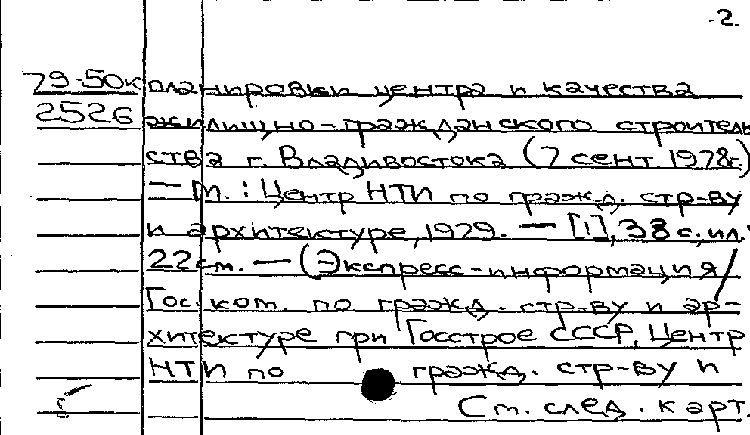 -2.
79-50к планировки центра и качества
2526 жилищно-гражданского строитель
ства г. Владивостока (7 сент. 1978г.)
— М.: Центр НТИ по гражд. стр-ву
и архитектуре, 1979. — [1], 38 с., ил.;
22 см. — (Экспресс-информация /
Гос. ком. по гражд. стр-ву и ар-
хитектуре при Госстрое СССР, Центр
НТИ по гражд. стр-ву и
См. след. карт.